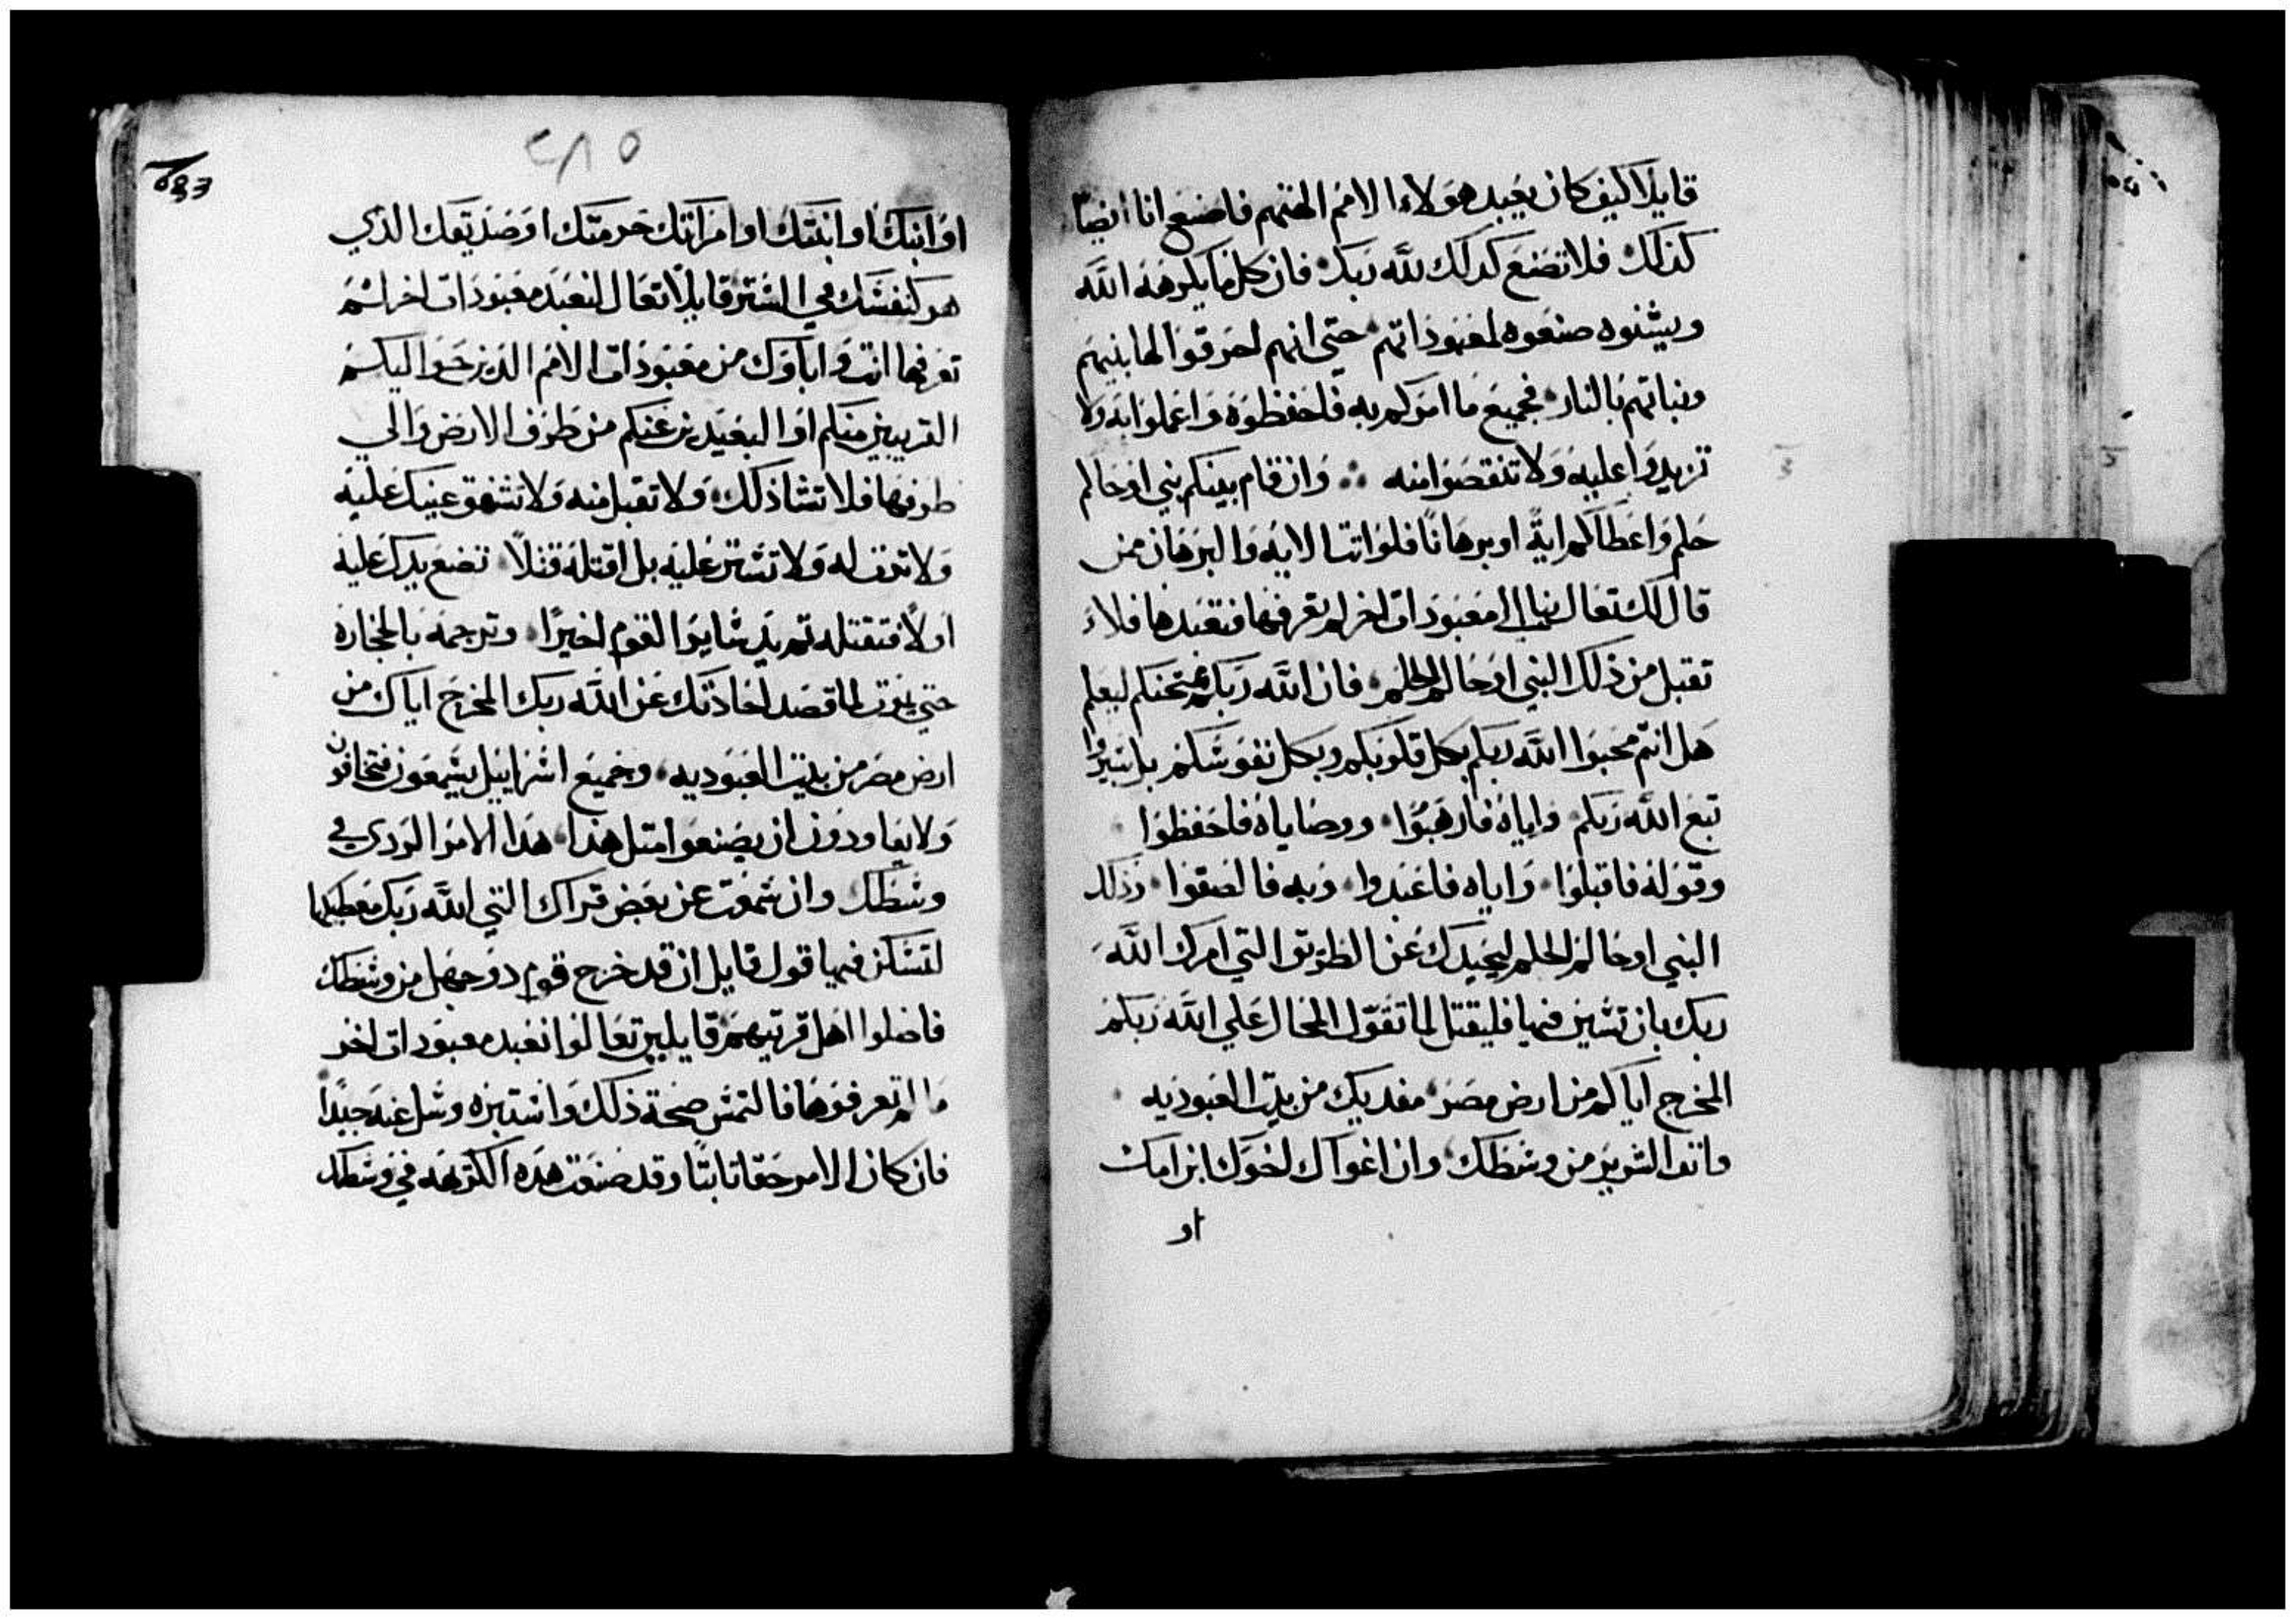 قايلا كيف كان يعبد هولاء الامم الهتهم فاصنع انا ايضا
كذلك فلا تصنع كدلك لله ربك فان كلما يكرهه الله
ويشنوه صنعوه لمعبوداتهم حتى انهم احرقوا لها بنيهم
وبناتهم بالنار فجميع ما امركم به فاحفظوه واعملوا به ولا
تزيدوا عليه ولا تنقصوا منه وان قام بينكم نبي او حالم
حلم واعطاكم اية او برهانا فلو اتت الايه والبرهان ممن
قال لك تعال بنا الى معبودات اخر لم تعرفها فنعبدها فلا
تقبل من ذلك النبي او حالم الحلم فان الله ربكم ممتحنكم ليعلم
هل انتم محبوا الله ربكم بكل قلوبكم وبكل نفوسكم بل سيروا
تبع الله ربكم واياه فارهبوا ووصاياه فاحفظوا
وقوله فاقبلوا واياه فاعبدوا وبه فالصقوا وذلك
النبي او حالم الحلم ليحيدك عن الطريق التي امرك الله
ربك بان تسير فيها فليقتل لما تقول المحال علي الله ربكم
المخرج اياكم من ارض مصر مفديك من بيت العبوديه
وانف الشرير من وسطك وان اغواك اخوك ابن امك
او
٢٨٥
او ابنك او ابنتك او امراتك حرمتك او صديقك الذي
هو كنفسك في الستر قايلا تعال لنعبد معبودات اخر لم
تعرفها انت واباوك من معبودات الامم الذين حواليكم
القريبين منكم او البعيدين عنكم من طرف الارض والي
طرفها فلا تشا ذلك ولا تقبل منه ولا تشفق عينيك عليه
ولا ترف له ولا تستر عليه بل اقتله قتلا تضع يدك عليه
اولا فتقتله تم يد سايرا القوم اخيرا وترجمه بالحجاره
حتي يموت لما قصد احادتك عن الله ربك المخرج اياك من
ارض مصر من بيت العبوديه وجميع اسراييل يسمعون فيخافون
ولا يعاودون ان يصنعوا متل هذا هدا الامر الردي في
وسطك وان سمعت عن بعض قراك التي الله ربك معطيكها
لتسكن فيها قول قايل ان قد خرج قوم دو جهل من وسطك
فاضلوا اهل قريتهم قايلين تعالوا نعبد معبودات اخر
ما لم تعرفوها فالتمس صحة ذلك واستبره وسل عنه جيدا
فان كان الامر حقا تابتا وقد صنعت هده الكريهه في وسطك